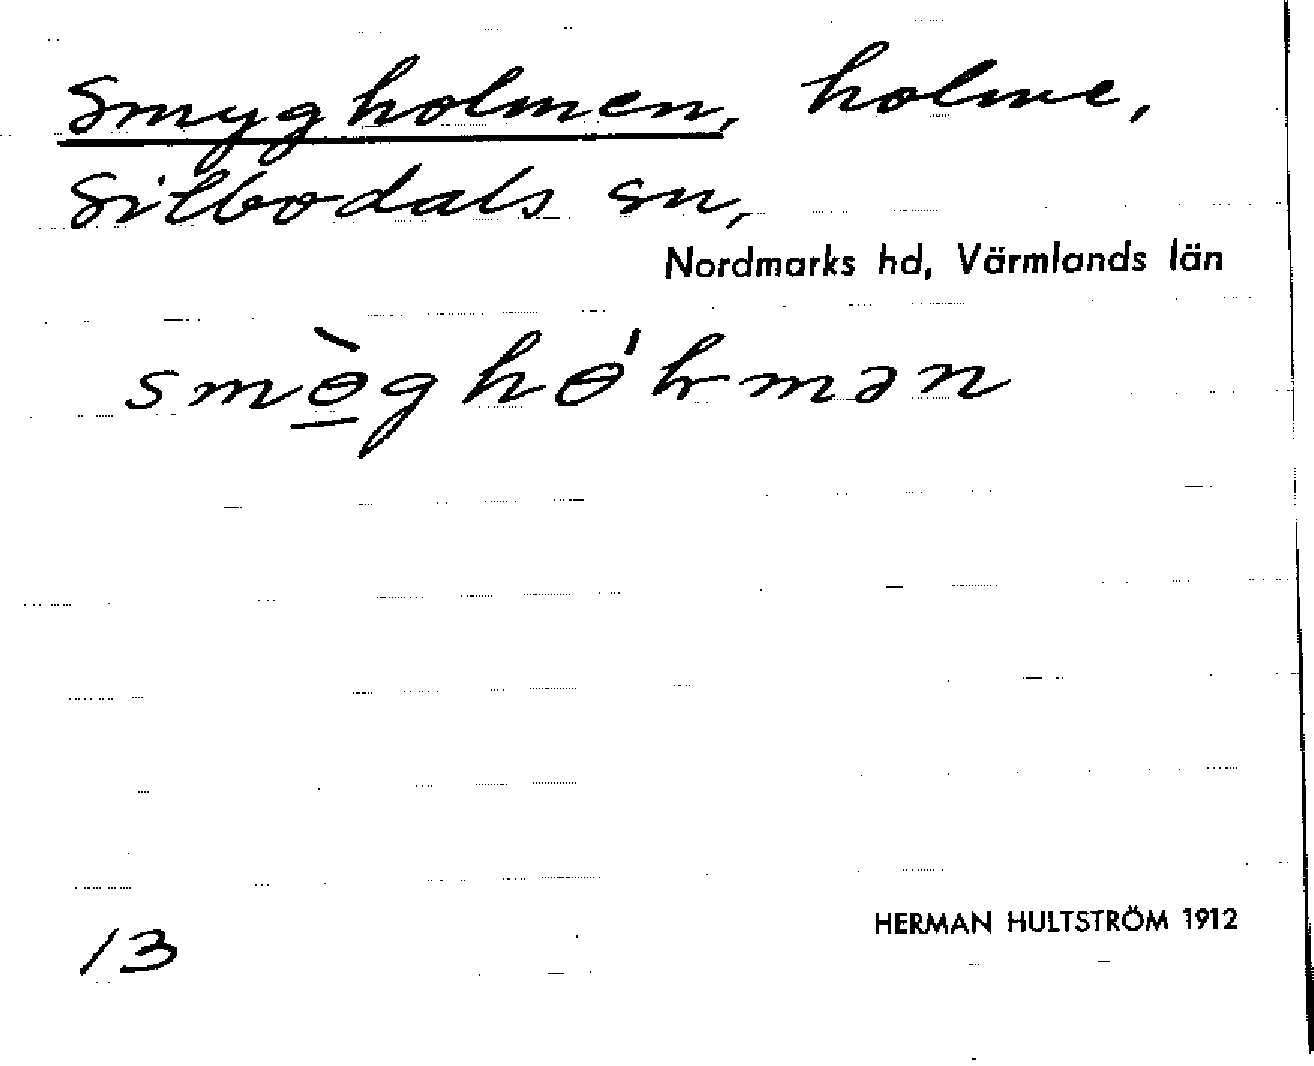 Smygholmen, holme,
Silbodals sn,
Nordmarks hd, Värmlands län
smɵ̲̀ghɵ́ɫmən
13
HERMAN HULTSTRÖM 1912